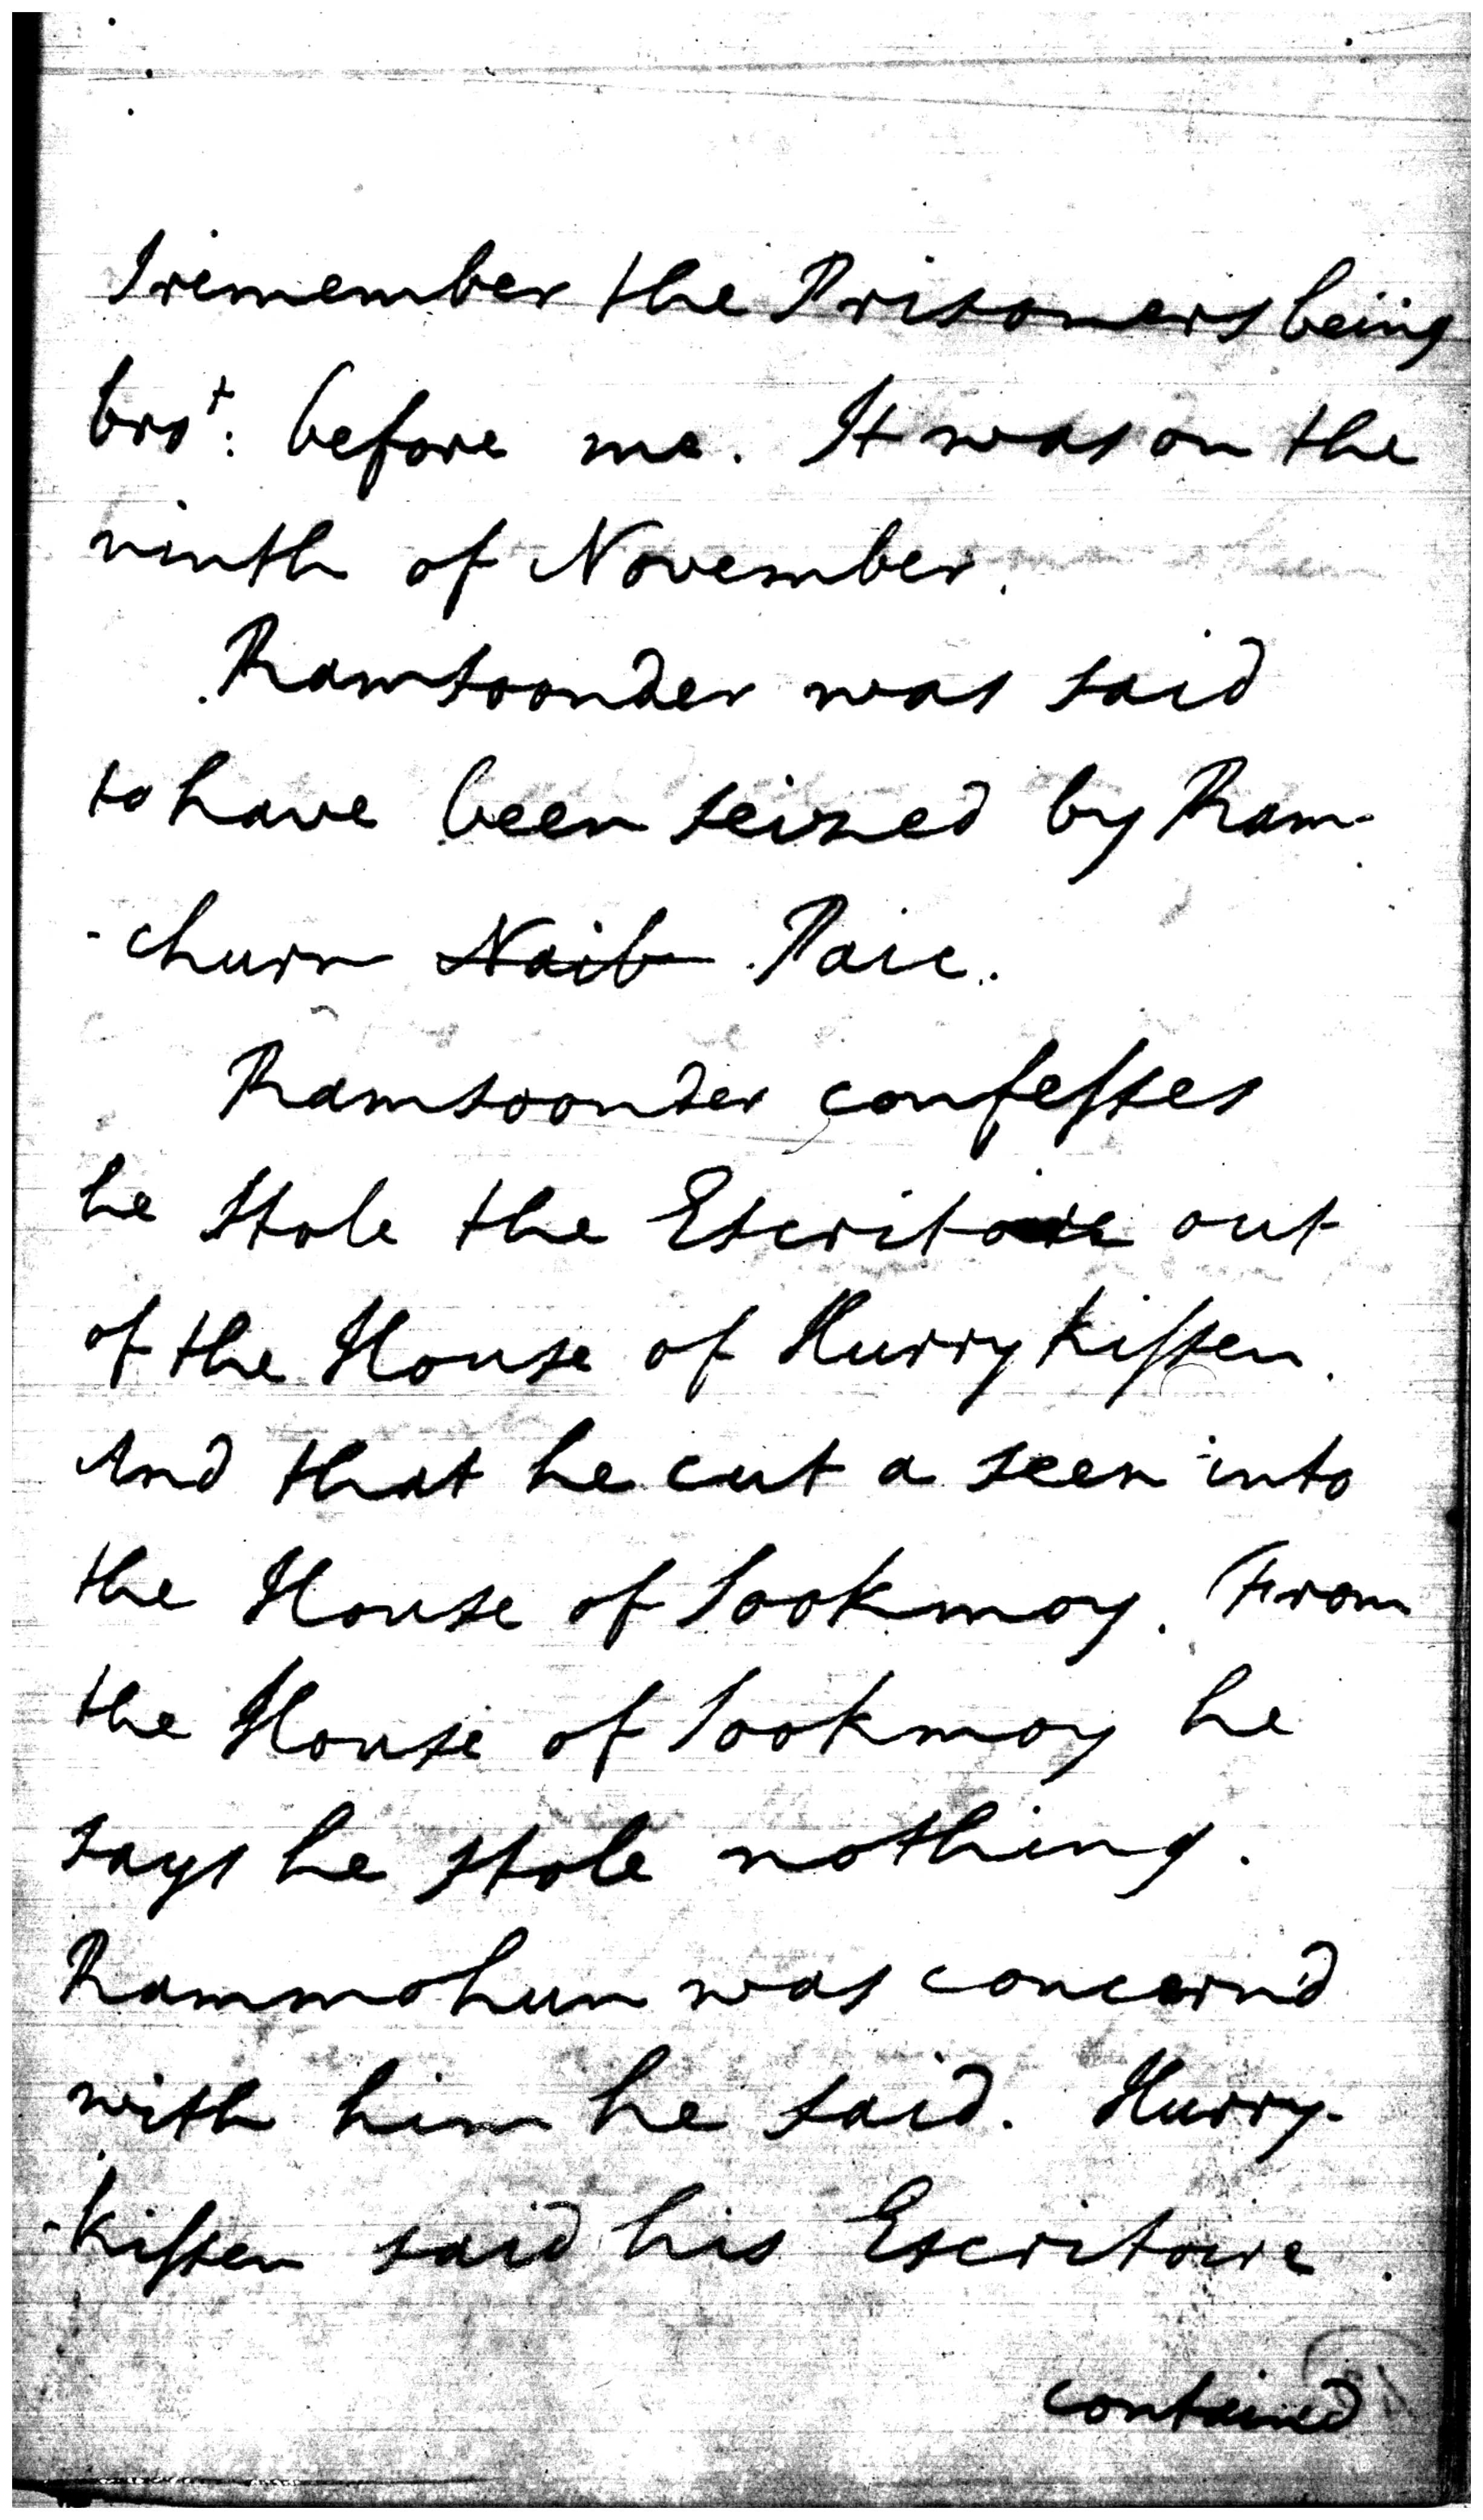 I remember the Prisoners being
bro^t: before me. It was on the
ninth of November.
Ramsoonder was said
to have been seized by Ram-
-churn ~~Naib~~ Paic.
Ramsoonder confeſses
he stole the Escritoire out
of the House of Hurry Kiſsen.
And that he cut a seen into
the House of Sookmoy. From
the House of Sookmoy he
says he stole nothing.
Rammohun was concern'd
with him he said. Hurry-
-kiſsen said his Escritoire
contained